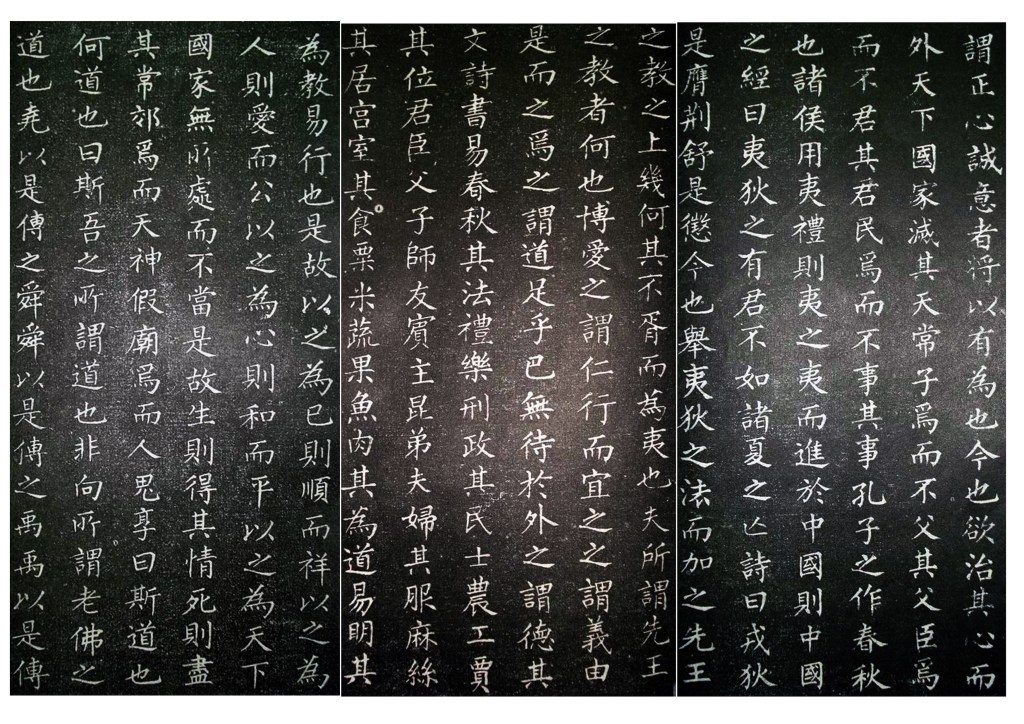 謂正心誠意者将以有為也今也欲治其心而
外天下國家滅其天常子焉而不父其父臣焉
而不君其君民焉而不事其事孔子之作春秋
也諸侯用夷禮則夷之夷而進於中國則中國
之經曰夷狄之有君不如諸夏之亡詩曰戎狄
是膺荆舒是懲今也舉夷狄之法而加之先王
之教之上幾何其不胥而為夷也夫所謂先王
之教者何也博愛之謂仁行而宜之之謂義由
是而之焉之謂道足乎己無待於外之謂德其
文詩書易春秋其法禮樂刑政其民士農工賈
其位君臣父子師友賓主昆弟夫婦其服麻絲
其居宫室其食粟米蔬果魚肉其為道易明其
為教易行也是故以之為己則順而祥以之為
人則愛而公以之為心則和而平以之為天下
國家無所處而不當是故生則得其情死則盡
其常郊焉而天神假廟焉而人鬼享曰斯道也
何道也曰斯吾之所謂道也非向所謂老佛之
道也堯以是傳之舜舜以是傳之禹禹以是傳